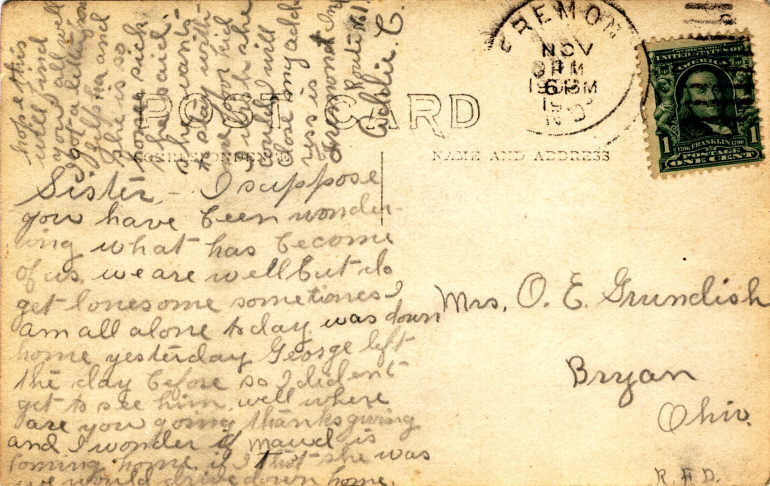 POST CARD
CORRESPONDENCE
NAME AND ADDRESS
FREMON
NOV
6 PM
UNITED STATES OF
AMERICA
1
FRANKLIN
POSTAGE
ONE CENT
1
Sister,- I suppose
you have been wonder-
ing what has become
of us. we are well but do
get lonesome sometimes I
am all alone to day was down
home yesterday George left
the day before so I did ent
get to see him. well where
are you going thanksgiving
and I wonder if Maud is
coming home if I thot she was
we would drive down home.
hope this
will find
you all well
I got a letter from
and
she is so
home sick
she said.
she wants
to stay with
me for kid
I wish she
could I will
close my add
ress is
Fremont Ind
Route N.1.
Addie C.
Mrs. O. E. Grundish
Bryan
Ohio.
R.F.D.